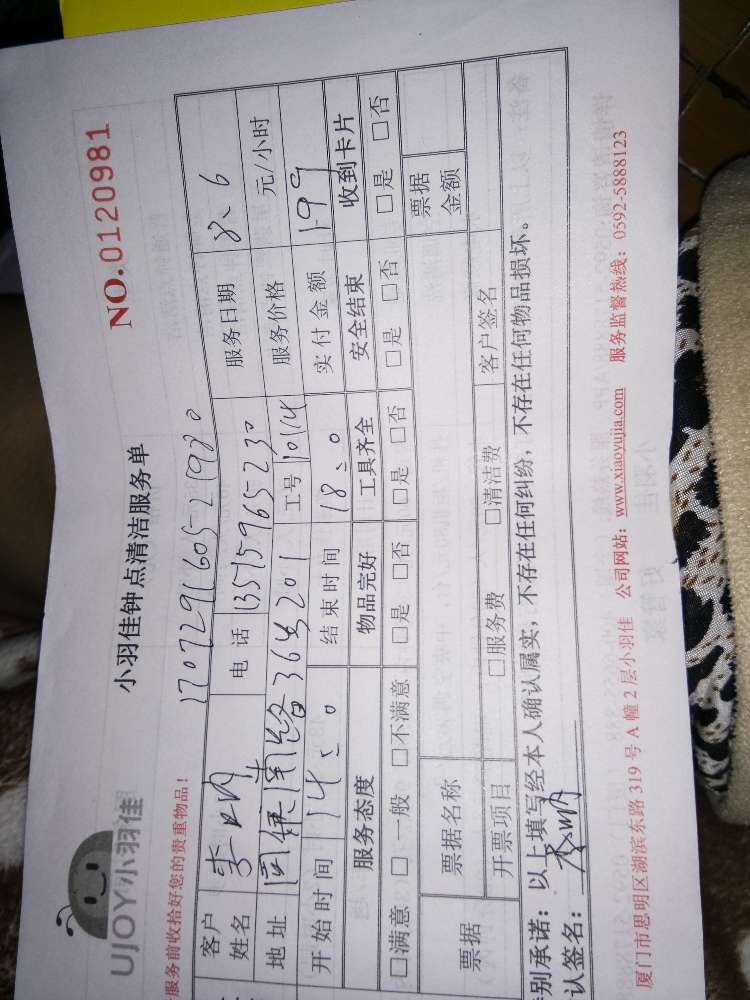 UJOY小羽佳
小羽佳钟点清洁服务单
NO.0120981
服务前收拾好您的贵重物品！
客户姓名 电话 13515965230 服务日期 8、6
地址 36号201 服务价格 元/小时
工号 10114
开始时间 14:0 结束时间 18:0 实付金额 199
服务态度 物品完好 工具齐全 安全结束 收到卡片
□满意 □一般 □不满意 □是 □否 □是 □否 □是 □否 □是 □否
票据 票据名称 票据金额
开票项目 □服务费 □清洁费 客户签名
别承诺：以上填写经本人确认属实，不存在任何纠纷，不存在任何物品损坏。
认签名：
厦门市思明区湖滨东路 319 号 A 幢 2 层小羽佳 公司网站：www.xiaoyujia.com 服务监督热线：0592-5888123